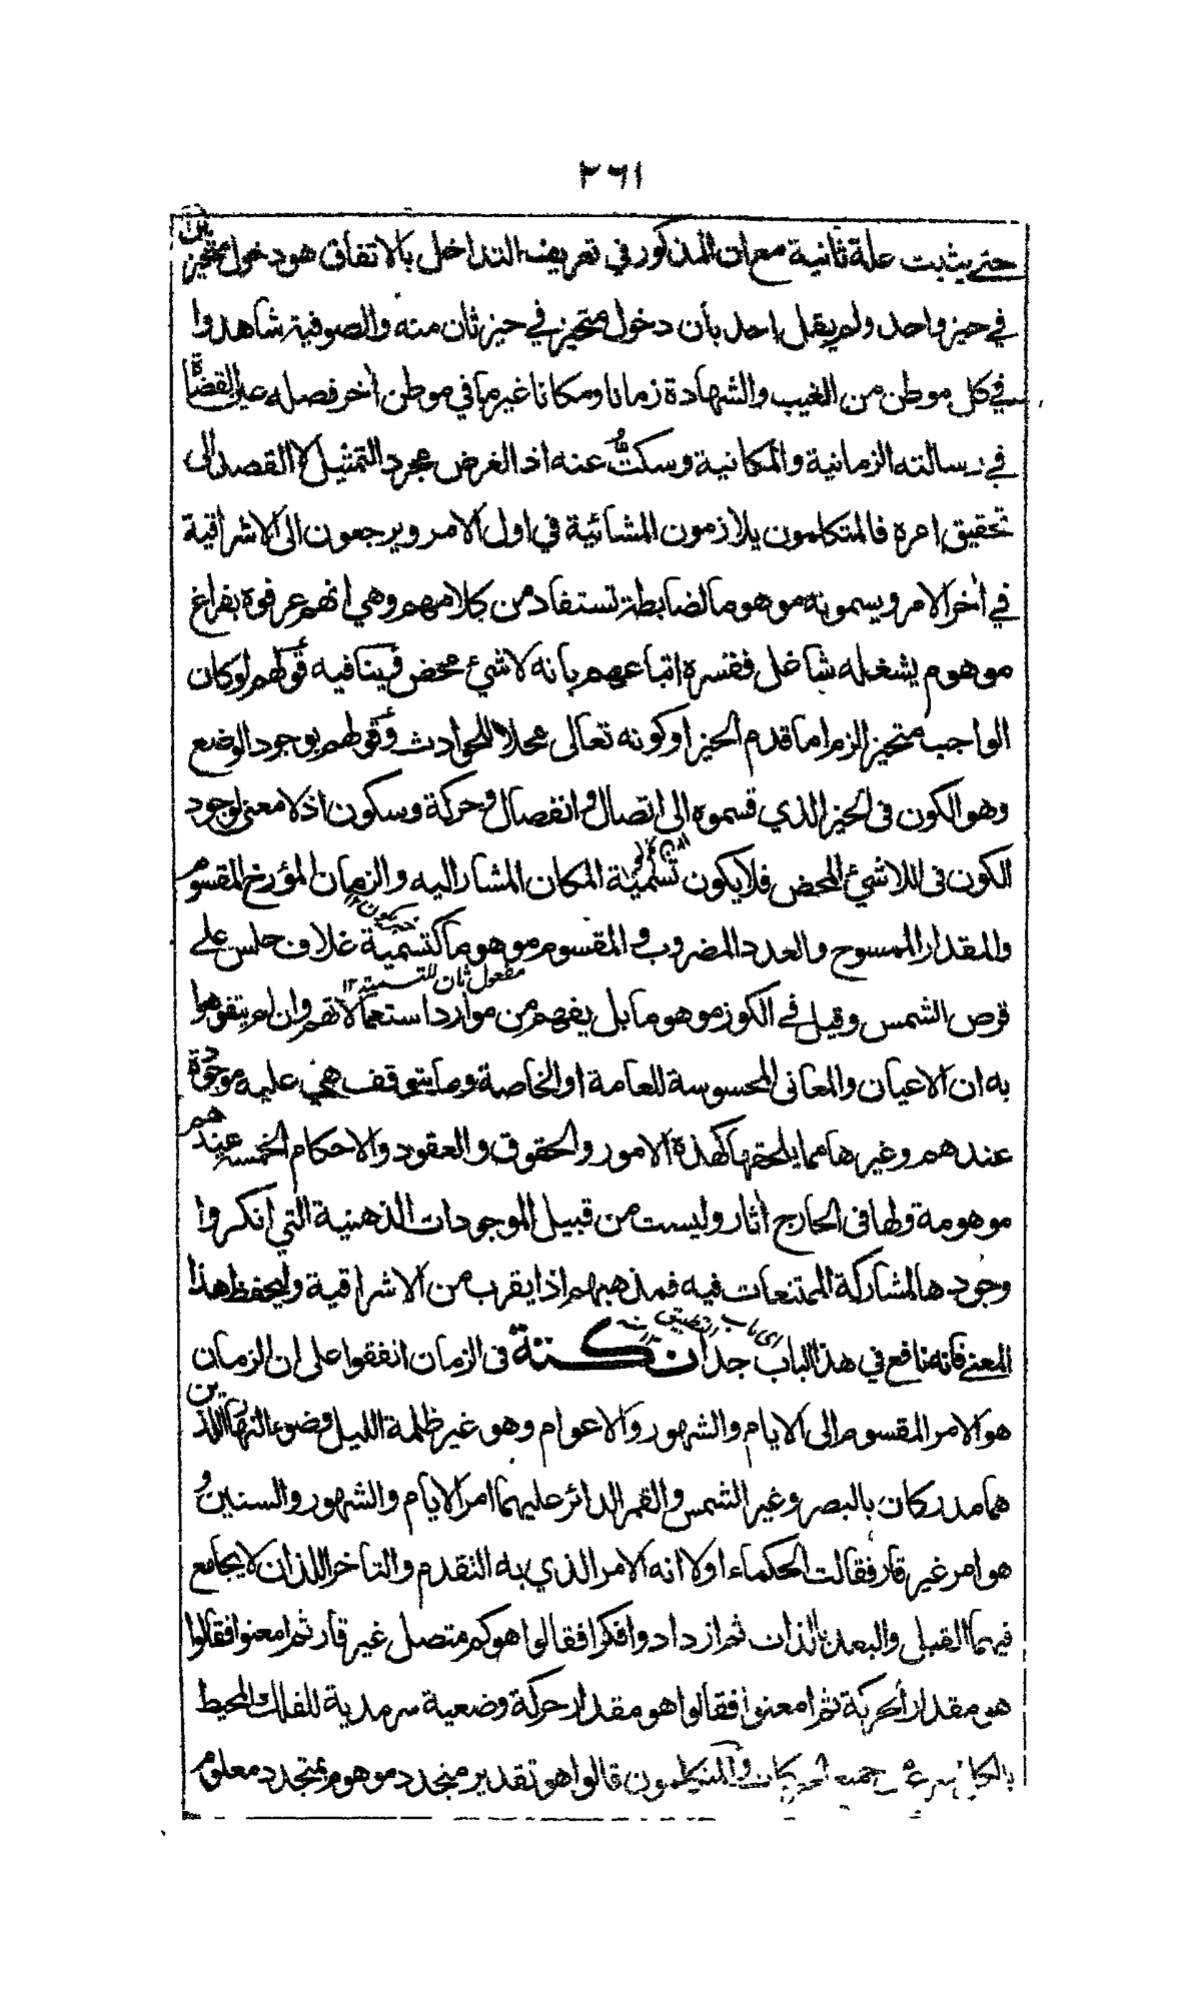 ٢٦١
حتى يثبت علة ثانية مع ان المذكور في تعريف التداخل بالاتفاق هو دخول متحيزين
في حيز واحد ولم يقل احد بأن دخول متحيز في حيز ثان منه والصوفية شاهدوا
في كل موطن من الغيب والشهادة زمانا ومكانا غير ما في موطن أخر فصله عين القضاة
في رسالته الزمانية والمكانية وسكتُّ عنه اذ الغرض مجرد التمثيل لا القصد الى
تحقيق امره فالمتكلمون يلازمون المشائية في اول الامر ويرجعون الى الاشراقية
في أخر الامر ويسمونه موهوما لضابطة تستفاد من كلامهم وهي انهم عرفوه بفراغ
موهوم يشغله شاغل ففسره اتباعهم بانه لا شيئ محض فينافيه قولهم لو كان
الواجب متحيزا لزم اما قدم الحيز او كونه تعالى محلا للحوادث وقولهم بوجود الوضع
وهو الكون في الحيز الذي قسموه الى اتصال وانفصال وحركة وسكون اذ لا معنى لوجود
الكون في اللاشيئ المحض فلا يكون تسمية المكان المشار اليه والزمان المؤرخ المقسوم
والمقدار الممسوح والعدد المضروب في المقسوم موهوما كتسمية غلاف جلس على
مفعول ثان للتسمية ١٢
قرص الشمس وقيل في الكوز موهوما بل يفهم من موارد استعمالاتهم وان لم يتفوهوا
به ان الاعيان والمعاني المحسوسة للعامة او الخاصة وما يتوقف هي عليه موجودة
عندهم وغيرها مما يلحقها كهذه الامور والحقوق والعقود والاحكام الخمسة عندهم
موهومة ولها في الخارج أثار وليست من قبيل الموجودات الذهنية التي انكروا
وجودها لمشاركة الممتنعات فيه فمذهبهم اذا يقرب من الاشراقية وليحفظ هذا
المعنى فانه نافع في هذا الباب جدا نكتة في الزمان اتفقوا على ان الزمان
هو الامر المقسوم الى الايام والشهور والاعوام وهو غير ظلمة الليل وضوء النهار اللذين
هما مدركان بالبصر وغير الشمس والقمر الدائر عليهما امر الايام والشهور والسنين و
هو امر غير قار فقالت الحكماء اولا انه الامر الذي به التقدم والتاخر اللذان لا يجامع
فيهما القبل والبعد بالذات ثم ازدادوا فكرا فقالوا هو كم متصل غير قار ثم امعنوا فقالوا
هو مقدار الحركة ثم امعنوا فقالوا هو مقدار حركة وضعية سرمدية للفلك المحيط
والمتكلمون قالوا هو تقدير متجدد موهوم بمتجدد معلوم